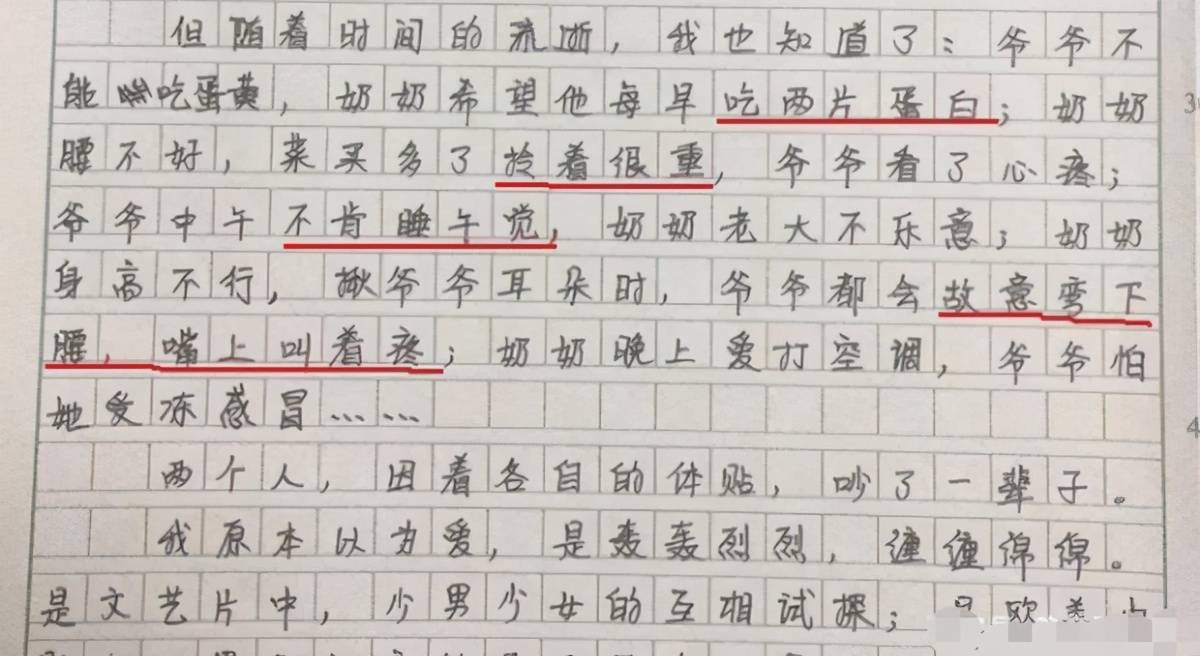 但随着时间的流逝，我也知道了：爷爷不
能吃蛋黄，奶奶希望他每早吃两片蛋白；奶奶
腰不好，菜买多了拎着很重，爷爷看了心疼；
爷爷中午不肯睡午觉，奶奶老大不乐意；奶奶
身高不行，揪爷爷耳朵时，爷爷都会故意弯下
腰，嘴上叫着疼；奶奶晚上爱打空调，爷爷怕
她受冻感冒……
两个人，因着各自的体贴，吵了一辈子。
我原本以为爱，是轰轰烈烈，缠缠绵绵。
是文艺片中，少男少女的互相试探；